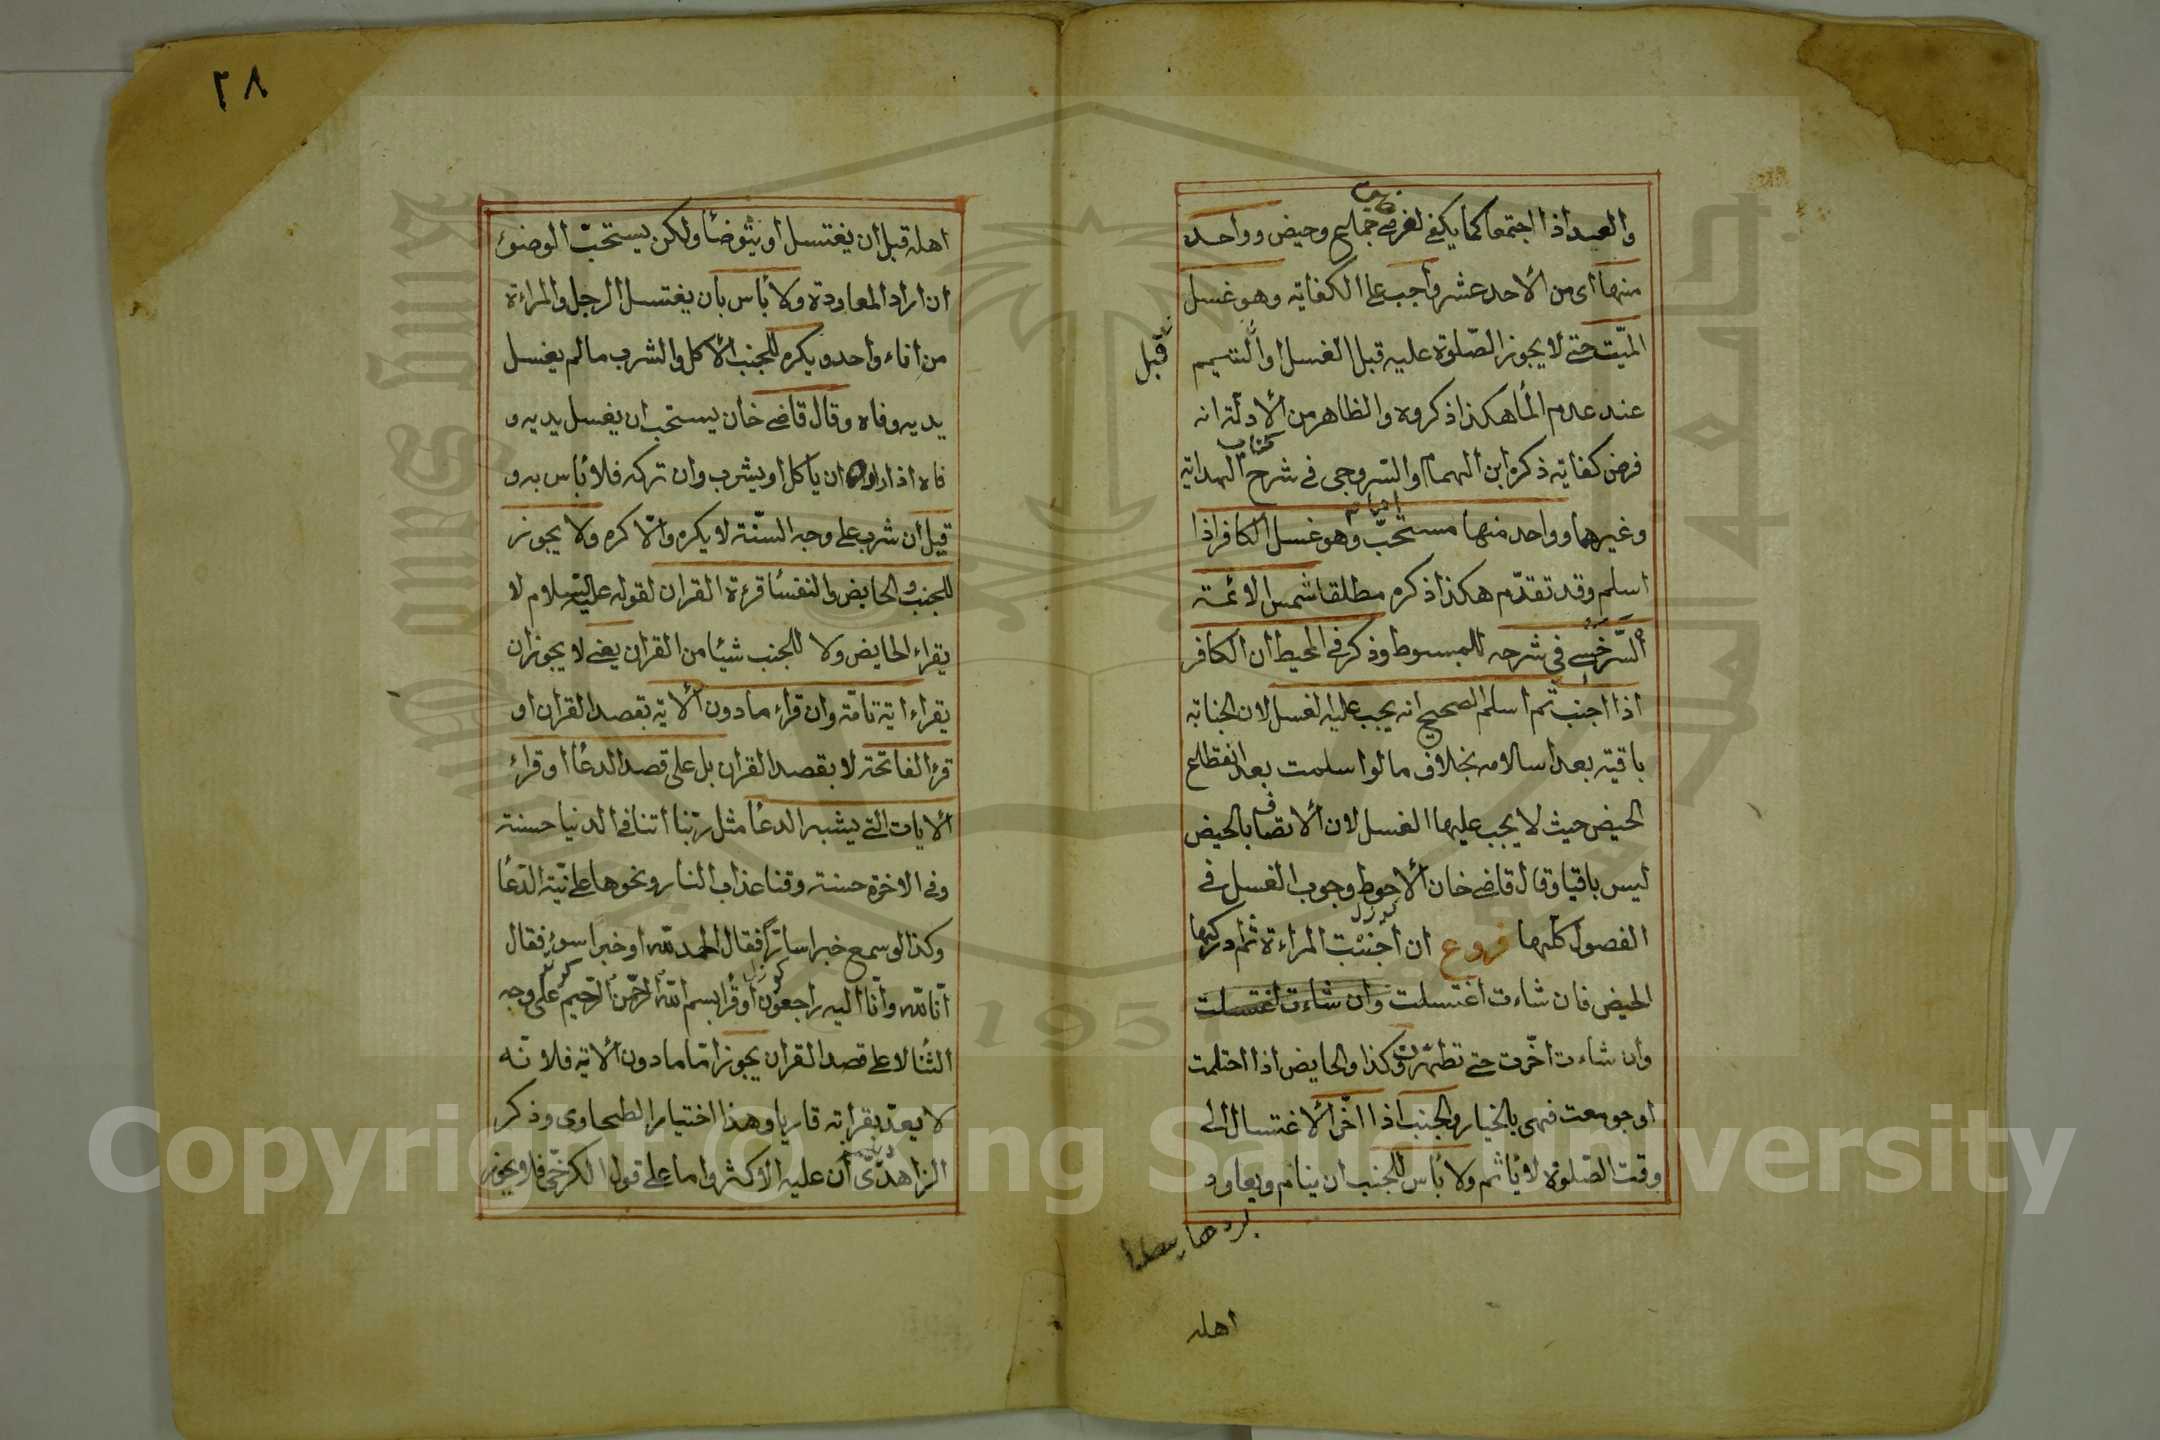 والعيد اذا اجتمعا كما يكفي لفرضي جماع وحيض وواحد
منها اى من الاحد عشر واجب على الكفاية وهو غسل
الميّت حتى لا يجوز الصّلوة عليه قبل الغسل او التيمم
قبل
عند عدم الماء هكذا ذكروه والظاهر من الادلّة انه
فرض كفاية ذكره ابن الهمام والسّروجى فى شرح الهداية
كتاب
وغيرهما وواحد منها مستحبّ وهو غسل الكافر اذا
اسلم وقد تقدّم هكذا ذكره مطلقا شمس الائمة
السّرخسى فى شرحه للمبسوط وذكر فى المحيط ان الكافر
اذا اجنب ثم اسلم الصحيح انه يجب عليه الغسل لان الجنابة
باقية بعد اسلامه بخلاف ما لو اسلمت بعد انقطاع
الحيض حيث لا يجب عليها الغسل لان الاتصاف بالحيض
ليس باقيا وقال قاضى خان الاحوط وجوب الغسل فى
الفصول كلها فروع ان اجنبت المراءة ثم ادركها
الحيض فان شاءت اغتسلت وان شاءت اغتسلت
وان شاءت اخّرت حتى تطهر وكذا والحايض اذا احتلمت
او جومعت فهى بالخيار والجنب اذا اخّر الاغتسال الى
وقت الصّلوة لا يأثم ولا بأس للجنب ان ينام ويعاود
اهله
٢٨
اهله قبل ان يغتسل او يتوضأ ولكن يستحبّ الوضوء
ان اراد المعاودة ولا بأس بان يغتسل الرجل والمراءة
من اناء واحد ويكره للجنب الاكل والشرب ما لم يغسل
يديه وفاه وقال قاضى خان يستحب ان يغسل يديه و
فاه اذا اراد ان يأكل او يشرب وان تركه فلا بأس به و
قيل ان شرب على وجه السّنة لا يكره والّا كره ولا يجوز
للجنب والحايض والنفسأ قرءة القران لقوله عليه السّلام لا
يقراء الحايض ولا للجنب شيئا من القران يعنى لا يجوز ان
يقراء اية تامّة وان قراء ما دون الاية بقصد القران او
قرء الفاتحة لا بقصد القران بل على قصد الدعأ او قراء
الايات التى يشبه الدعأ مثل ربّنا اتنا فى الدنيا حسنة
وفى الاخرة حسنة وقنا عذاب النار ونحوها على نيّة الدّعأ
وكذا لو سمع خبرا سارّا فقال الحمد للّه او خبرا سوء فقال
انّا للّه وانّا اليه راجعون او قرأ بسم اللّه الرّحمن الرّحيم على وجه
الثنأ لا على قصد القران يجوز امّا ما دون الاية فلانّه
لا يعدّ بقرأته قاريا وهذا اختيار الطحاوى وذكر
الزاهدىّ ان عليه الاكثر واما على قول الكرخى فلا يجوز
Copyright © King Saud University
King Saud University
جامعة الملك سعود
1957